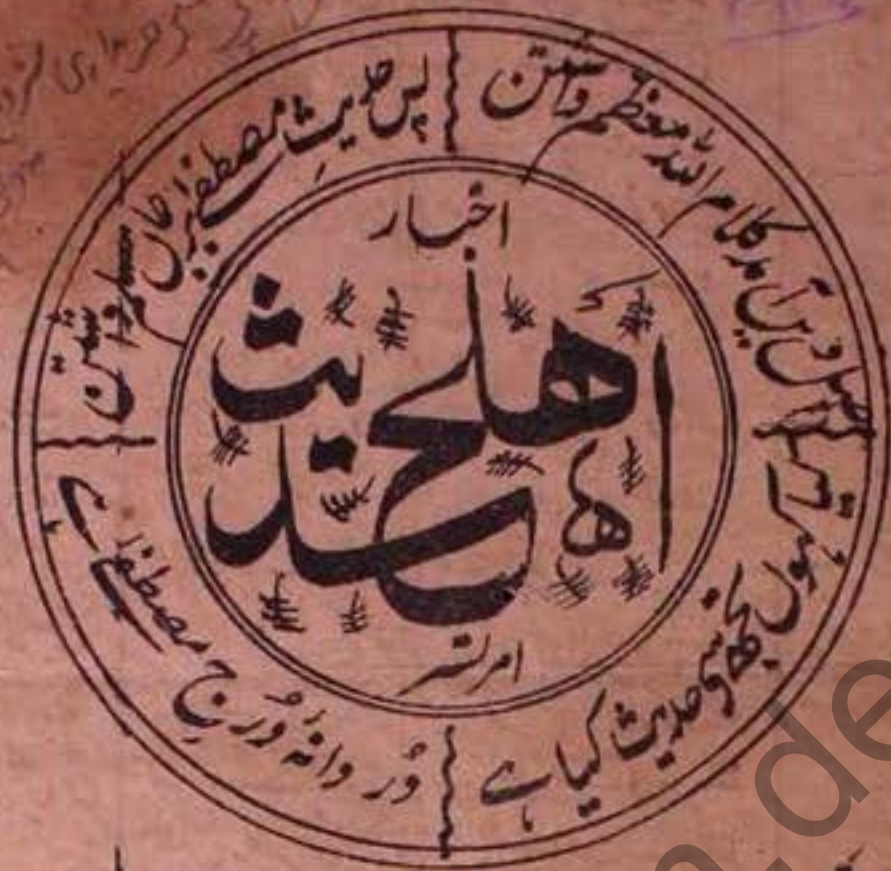 اصل دین آمد کلام اللہ معظم داشتن
پس حدیث مصطفےٰ بر جاں مسلم داشتن
اخبار
اهلحدیث
امرتسر
تجھ سے حدیث کیا ہے
در دانۂ درج مصطفےٰ ہے
خریداری